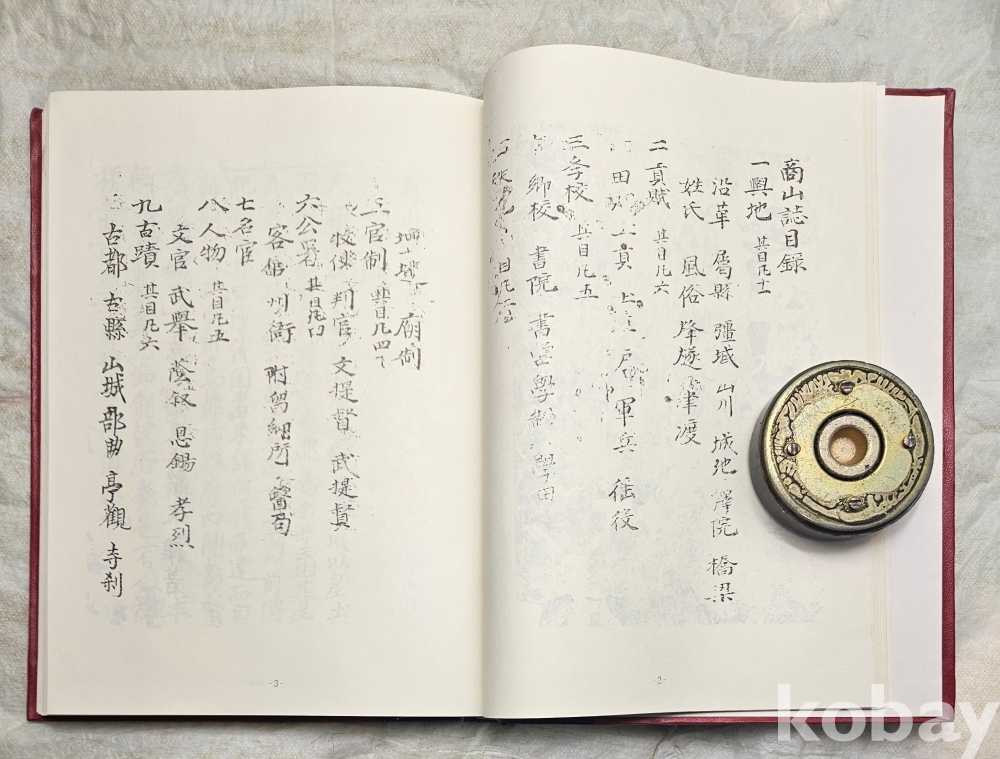 商山誌目録
一輿地 其目凡十一
沿革 屬縣 疆域 山川 城池 驛院 橋梁
姓氏 風俗 烽燧 津渡
二貢賦 其目凡六
田 貢 戶 軍兵 徭役
三學校 其目凡五
鄉校 書院 書堂 學 學田
目凡
壇 廟制
五官制 其目凡四
牧使 判官 文提督 武提督
六公署 其目凡
客館 州衙 附 所 醫局
七名宦
八人物 其目凡五
文官 武舉 蔭敍 恩錫 孝烈
九古蹟 其目凡六
古都 古縣 山城 部曲 亭觀 寺刹
-2-
-3-
kobay